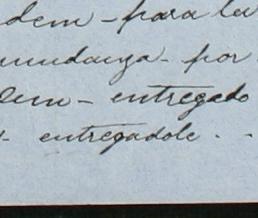 dem - para la
mudanza - por
dem - entregado
- entregadole . -